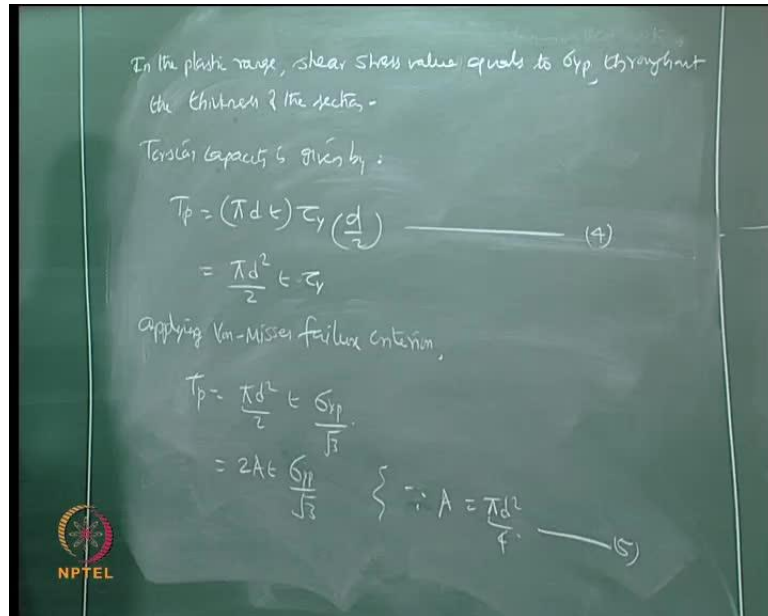 In the plastic range, shear stress value equals to σyp, throughout
the thickness & the section.
Torsion capacity is given by:
Tp = (πdt) τy (d/2) (4)
= πd²/2 t · τy
Applying Von-Misses failure criterion,
Tp = πd²/2 t σyp/√3 .
= 2At σyp/√3 { ∵ A = πd²/4 . (5)
NPTEL